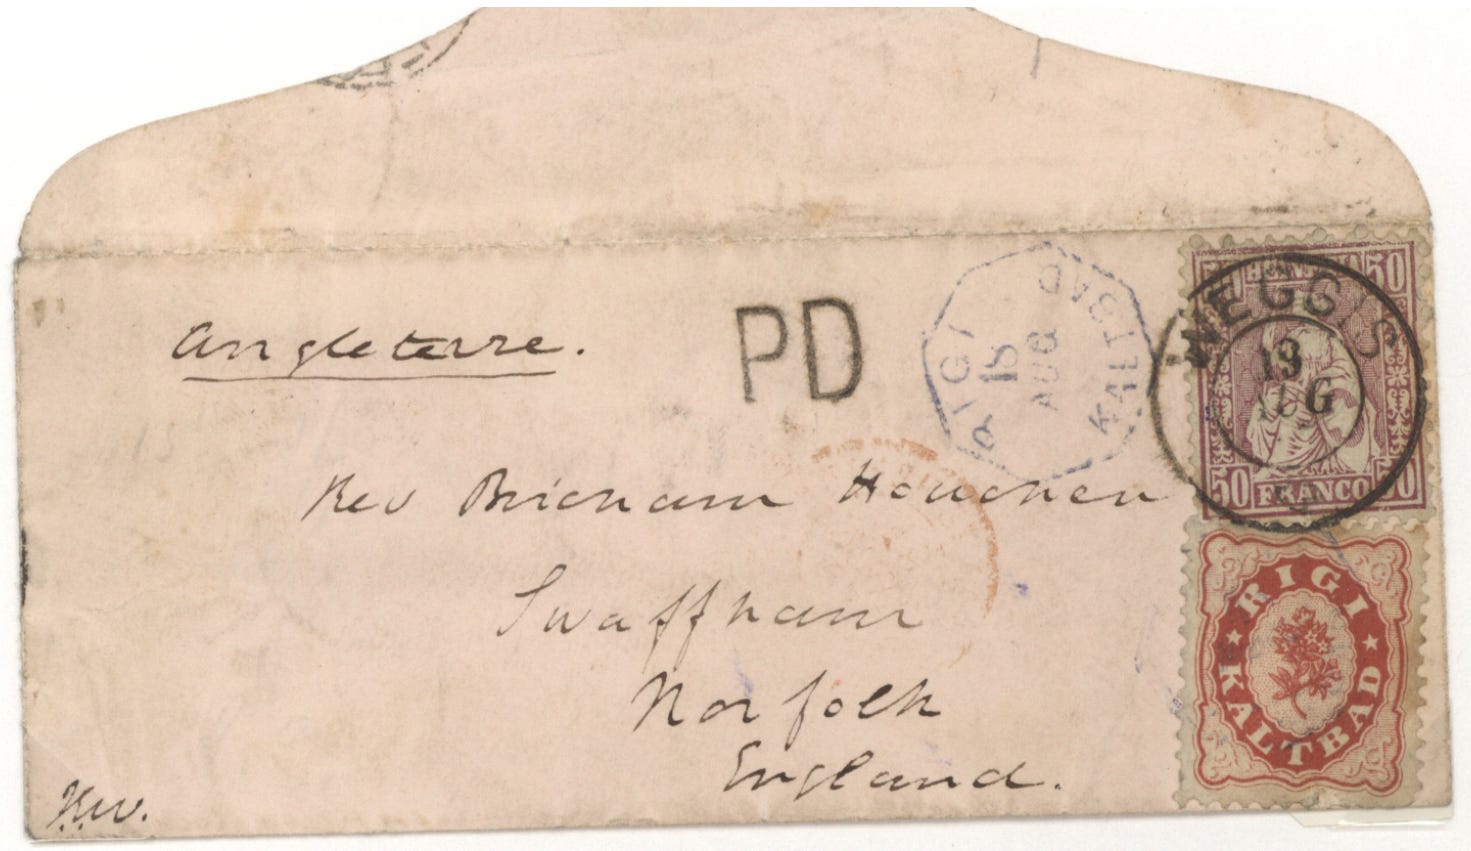 Angleterre.
PD
RIGI KALTBAD
18
AUG
WEGGIS
19
AUG
50 50
50 FRANCO 50
Rev Brienam Houchen
Swaffham
Norfolk
England.
RIGI
KALTBAD